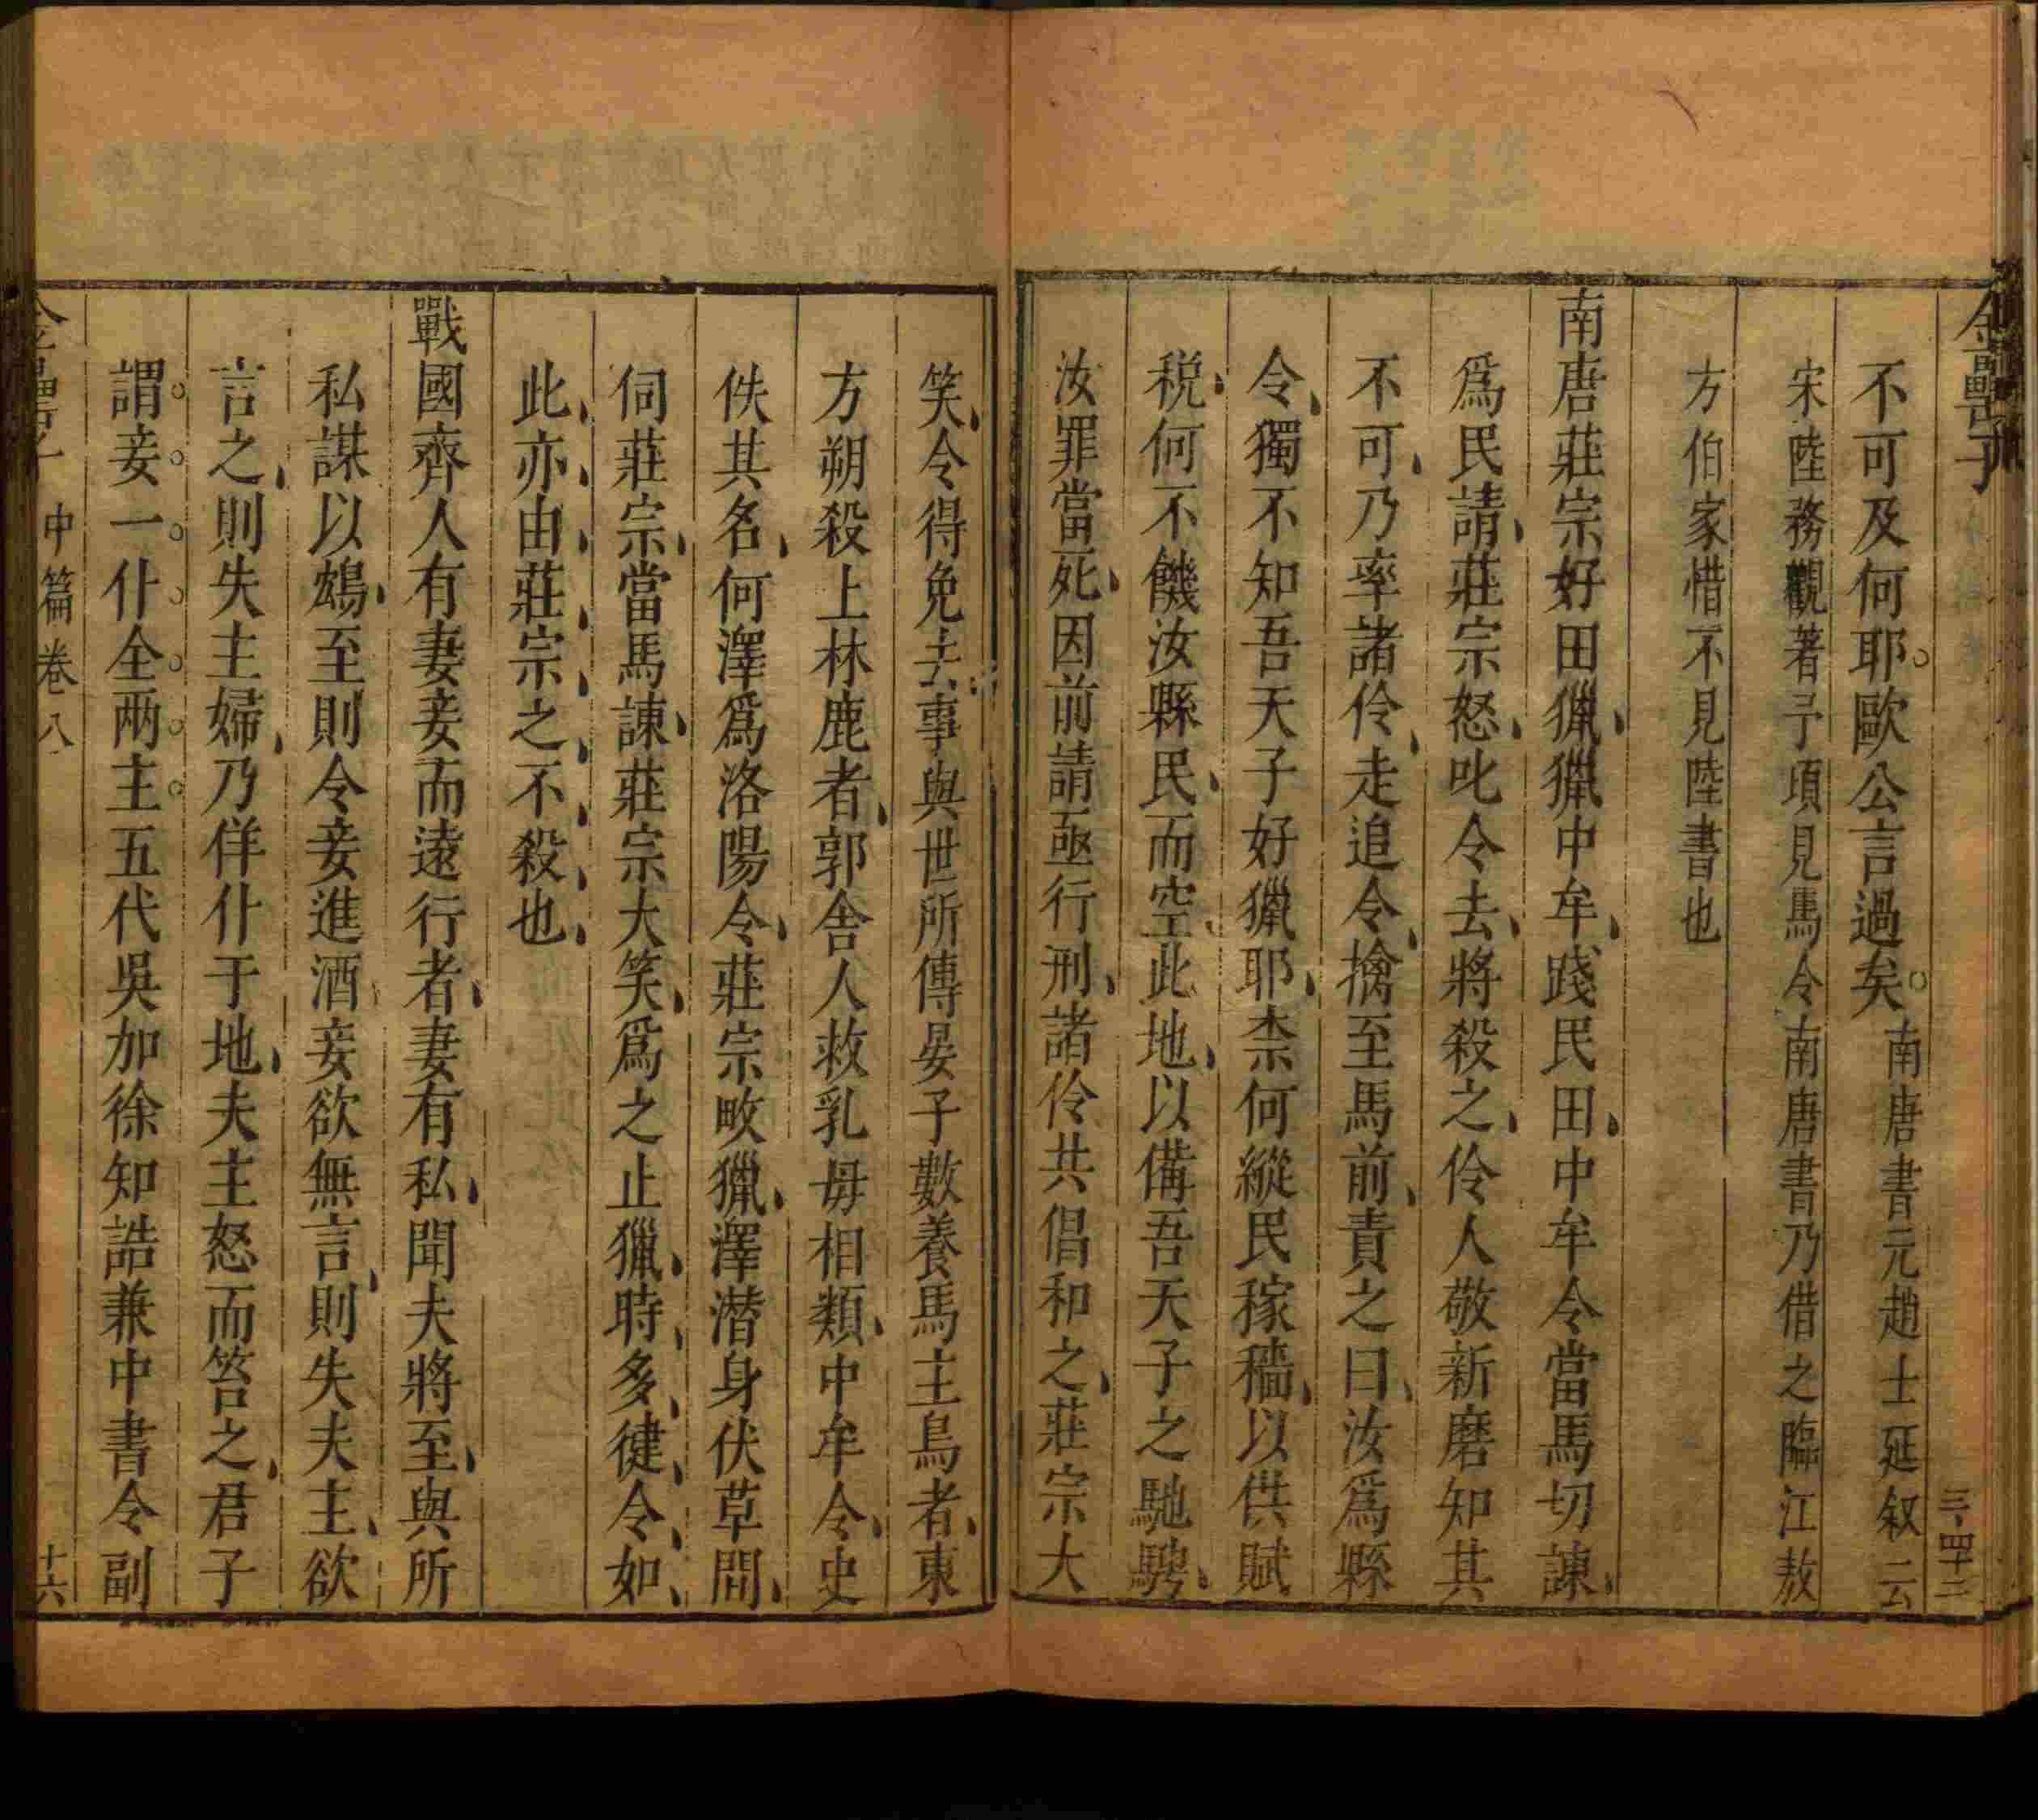 金罍子
三四十二
不可及何耶歐公言過矣南唐書元趙士延叙云
宋陸務觀著予頃見馬令南唐書乃借之臨江敖
方伯家惜不見陸書也
南唐莊宗好田獵獵中牟踐民田中牟令當馬切諫
爲民請莊宗怒叱令去將殺之伶人敬新磨知其
不可乃率諸伶走追令擒至馬前責之曰汝爲縣
令獨不知吾天子好獵耶柰何縱民稼穡以供賦
税何不饑汝縣民而空此地以備吾天子之馳騁
汝罪當死因前請亟行刑諸伶共倡和之莊宗大
笑令得免去事與世所傳晏子數養馬主鳥者東
方朔殺上林鹿者郭舍人救乳母相類中牟令史
佚其名何澤爲洛陽令莊宗畋獵澤潜身伏草間
伺莊宗當馬諫莊宗大笑爲之止獵時多健令如
此亦由莊宗之不殺也
戰國齊人有妻妾而遠行者妻有私聞夫將至與所
私謀以鴆至則令妾進酒妾欲無言則失夫主欲
言之則失主婦乃佯仆于地夫主怒而笞之君子
謂妾一仆全兩主五代吳加徐知誥兼中書令副
中篇卷八
十六